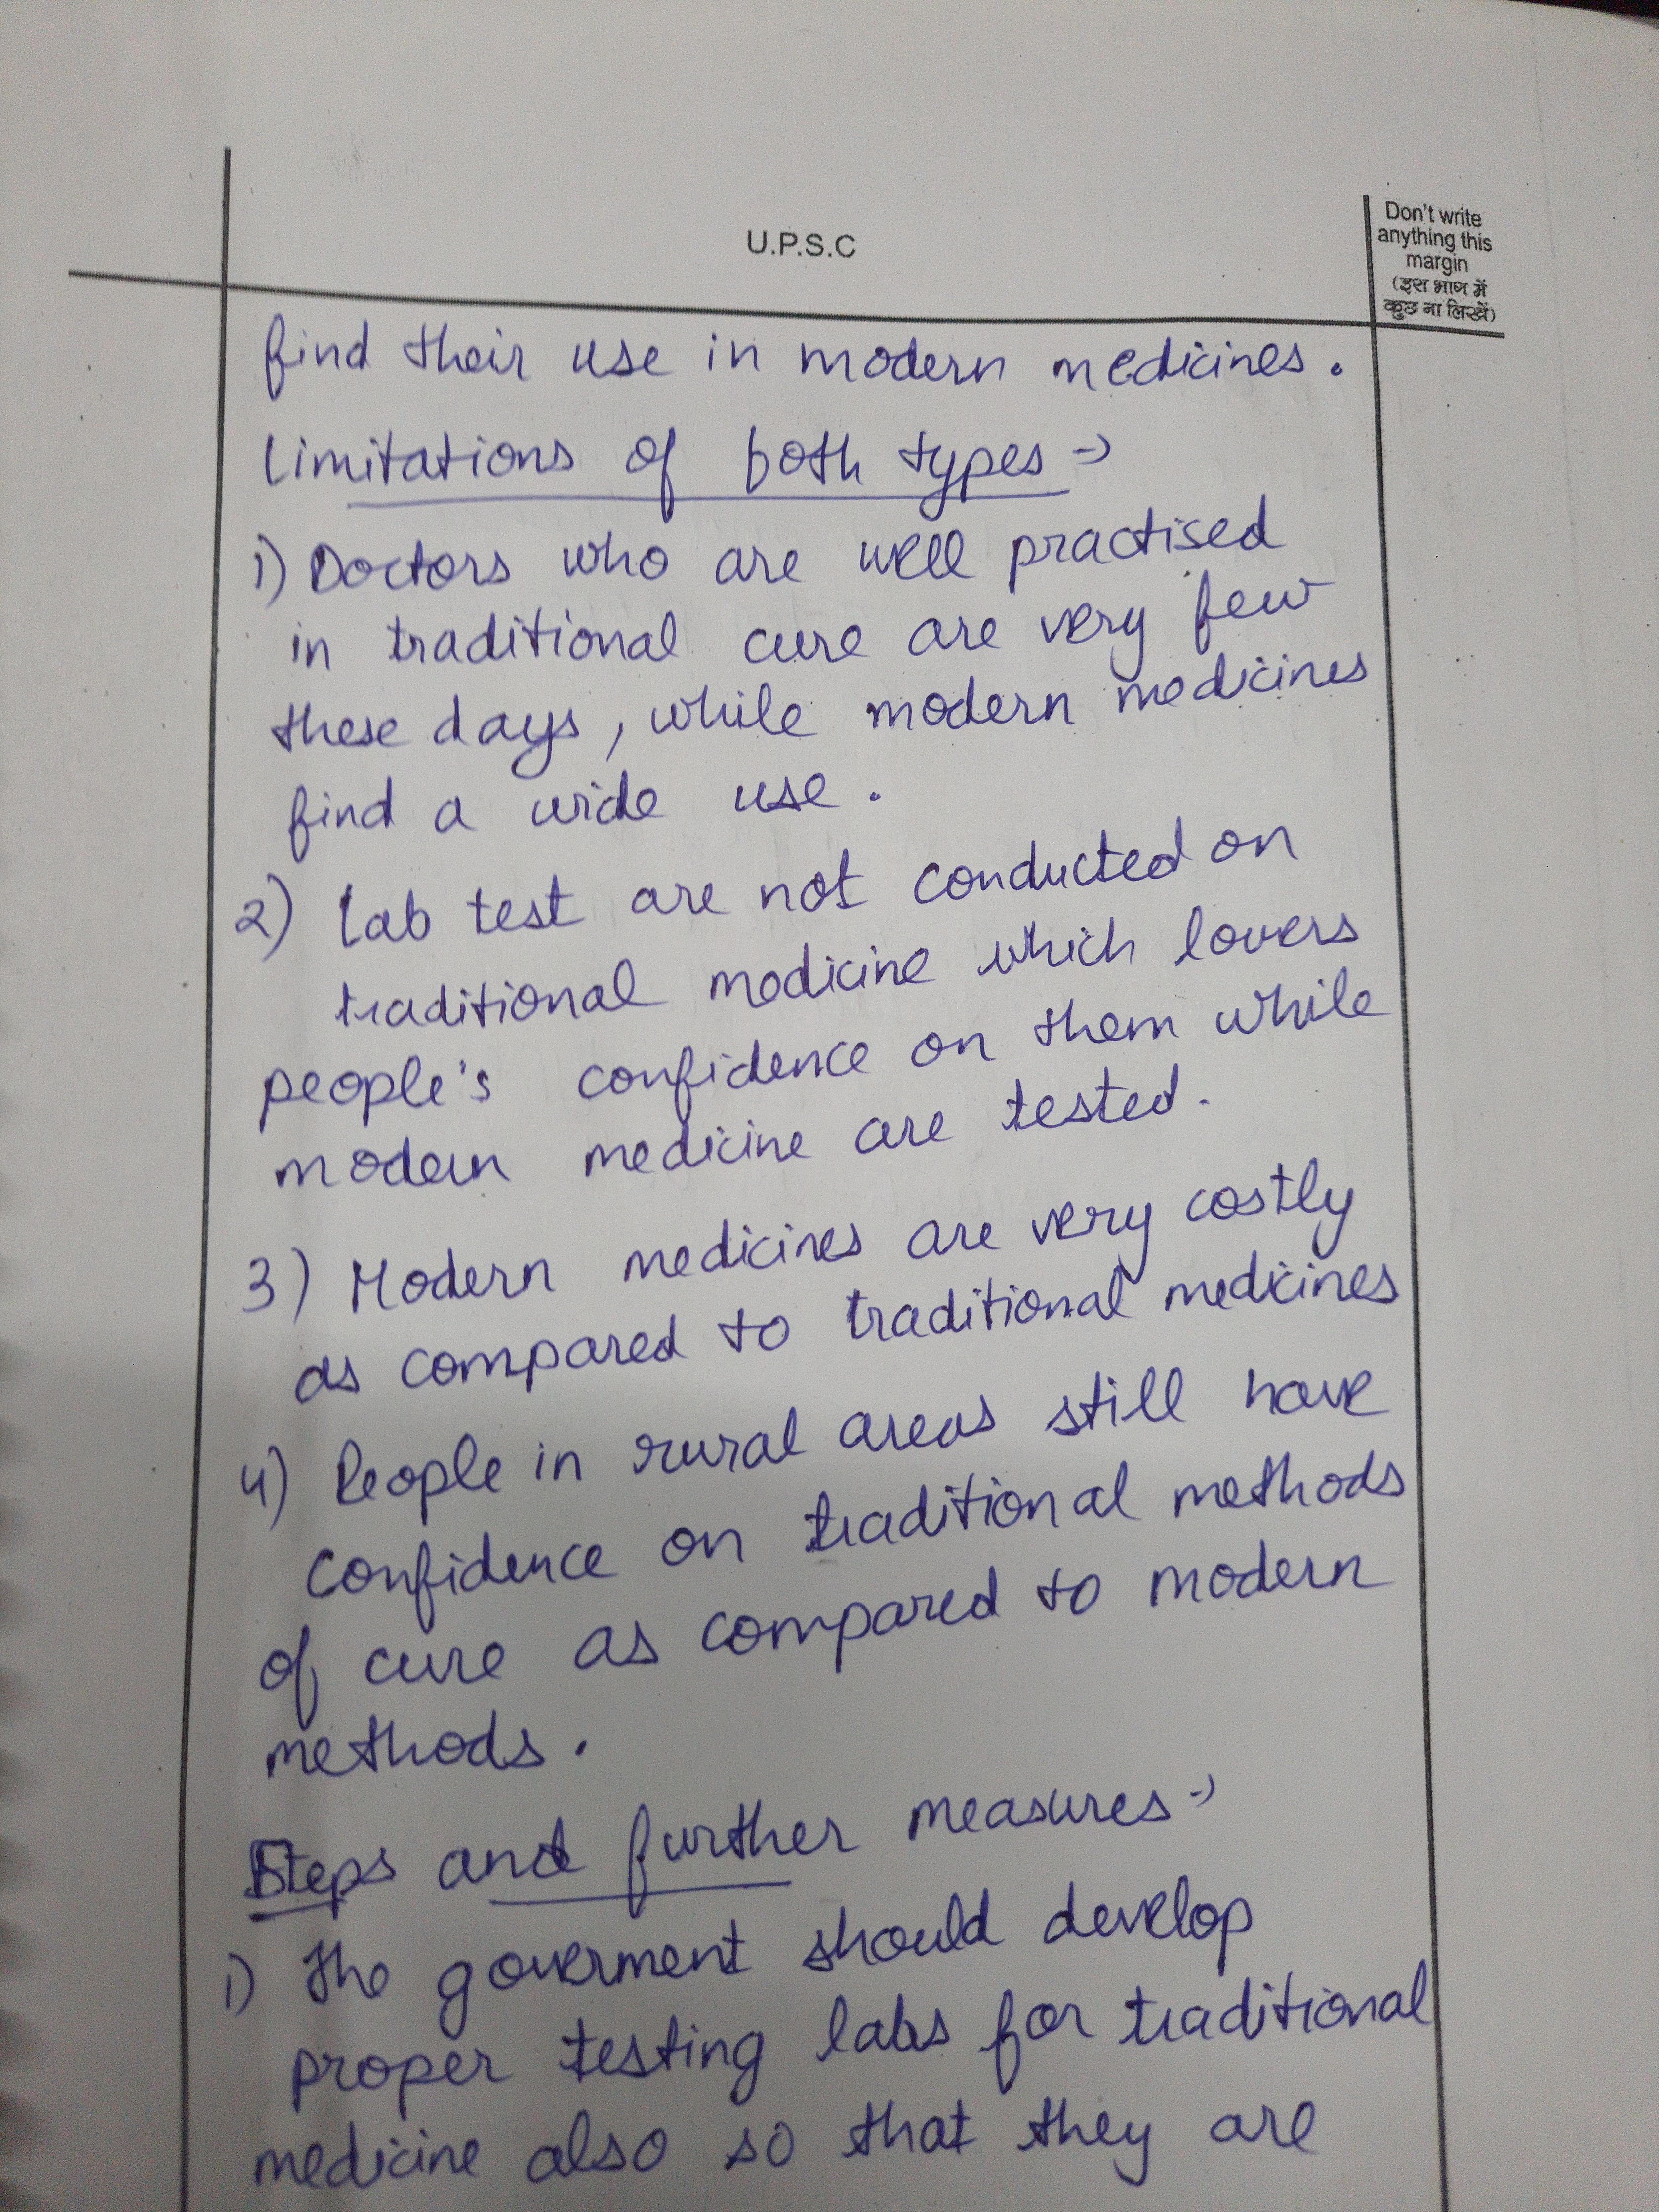 U.P.S.C
Don't write
anything this
margin
(इस भाग में
कुछ ना लिखें)
find their use in modern medicines.
Limitations of both types →
1) Doctors who are well practised
in traditional cure are very few
these days, while modern medicines
find a wide use.
2) Lab test are not conducted on
traditional medicine which lovers
people's confidence on them while
modern medicine are tested.
3) Modern medicines are very costly
as compared to traditional medicines
4) People in rural areas still have
confidence on traditional methods
of cure as compared to modern
methods.
Steps and further measures →
1) The goverment should develop
proper testing labs for traditional
medicine also so that they are